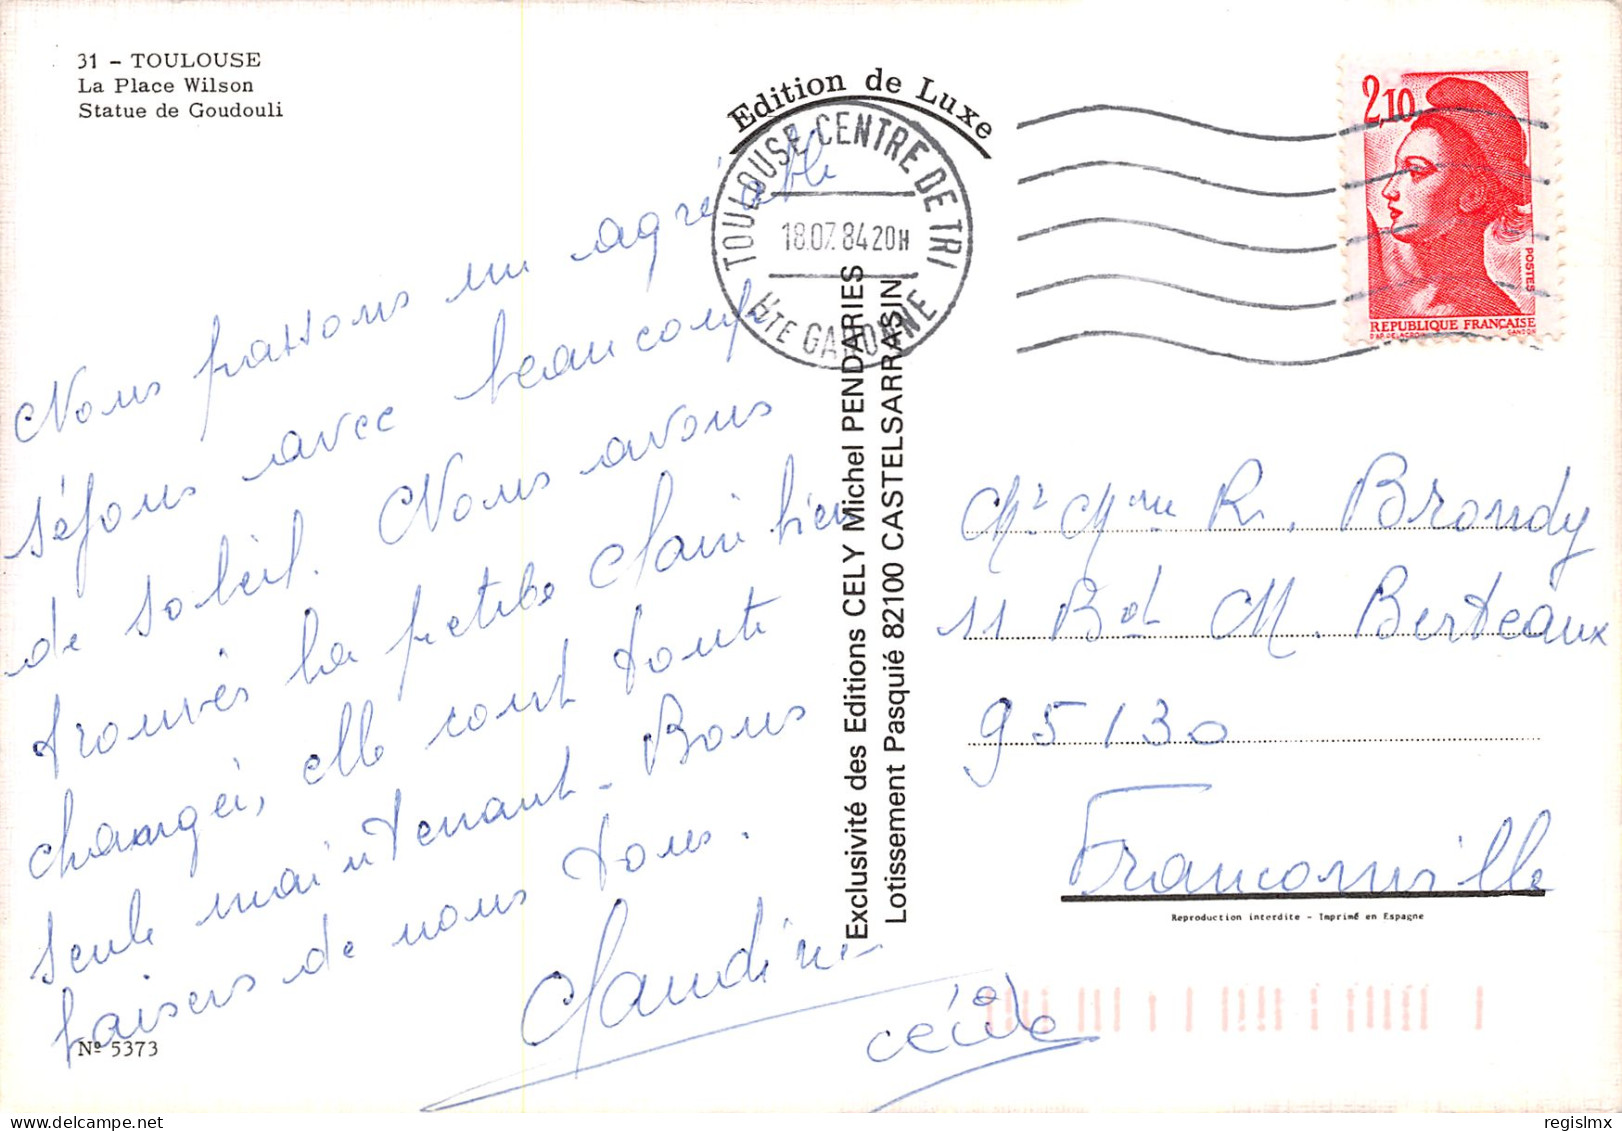 31 - TOULOUSE
La Place Wilson
Statue de Goudouli
Edition de Luxe
TOULOUSE CENTRE DE TRI
18.07.84 20H
HTE GARONNE
2,10
POSTES
REPUBLIQUE FRANÇAISE
D'AP. DELACROIX GANDON
Nous passons un agréable
séjour avec beaucoup
de soleil. Nous avons
trouvés la petite Claire bien
changée, elle court toute
seule maintenant. Bons
baisers de nous tous.
Claudine
Cécile
Nº 5373
Exclusivité des Editions CELY Michel PENDARIES
Lotissement Pasquié 82100 CASTELSARRASIN
Mr Mme R. Brondy
11 Bd M. Berteaux
95130
Franconville
Reproduction interdite - Imprimé en Espagne
regislmx